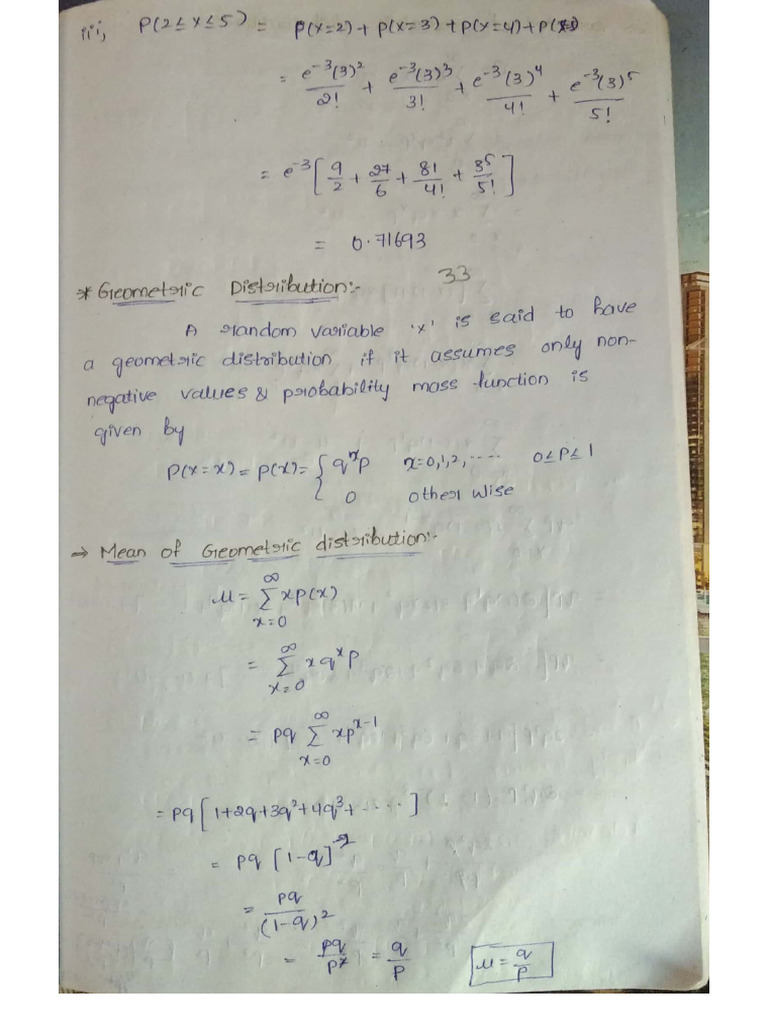 iii, P(2≤x≤5) = P(x=2)+P(x=3)+P(x=4)+P(x=5)
= e⁻³(3)²/2! + e⁻³(3)³/3! + e⁻³(3)⁴/4! + e⁻³(3)⁵/5!
= e⁻³[9/2 + 27/6 + 81/4! + 3⁵/5!]
= 0.71693
33
* Geometric Distribution:-
A random variable 'x' is said to have
a geometric distribution, if it assumes only non-
negative values & probability mass function is
given by
P(x=x) = P(x) = { qˣp x=0,1,2,..... 0≤P≤1
0 other wise
→ Mean of Geometric distribution:-
μ = ∞ Σ x=0 xp(x)
= ∞ Σ x=0 xqˣp
= pq ∞ Σ x=0 xpˣ⁻¹
= pq[1+2q+3q²+4q³+.....]
= pq [1-q]⁻²
= pq/(1-q)²
= pq/p² = q/p μ = q/p